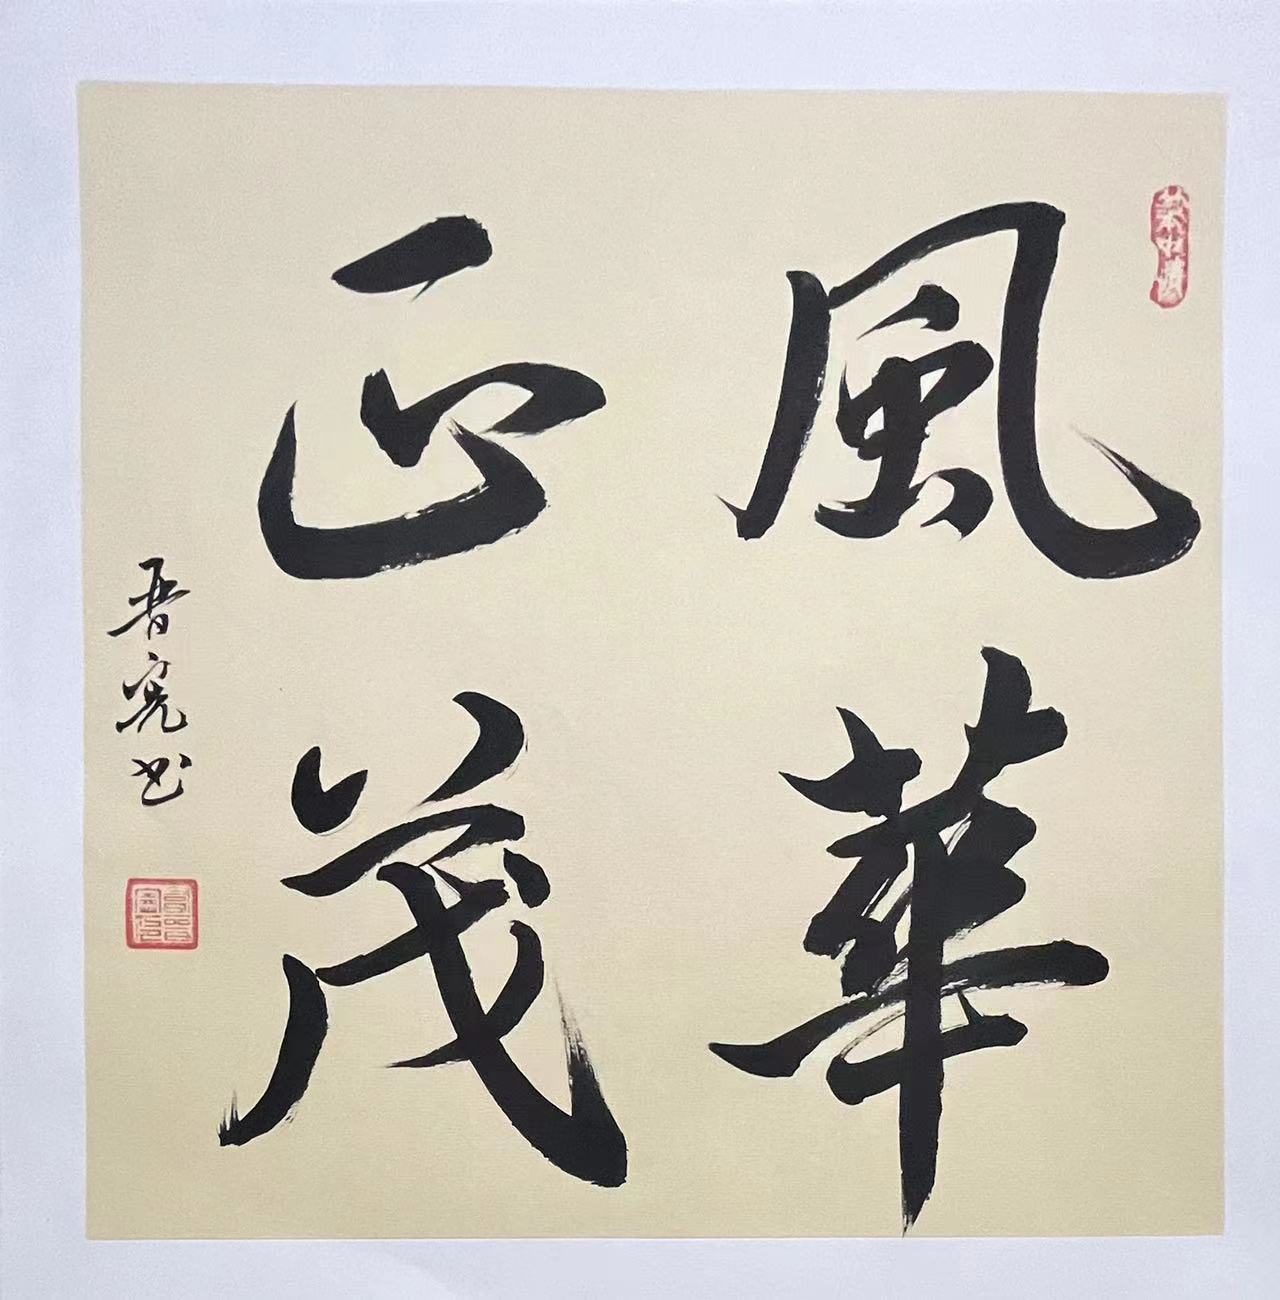 風華
正茂
晋亮书